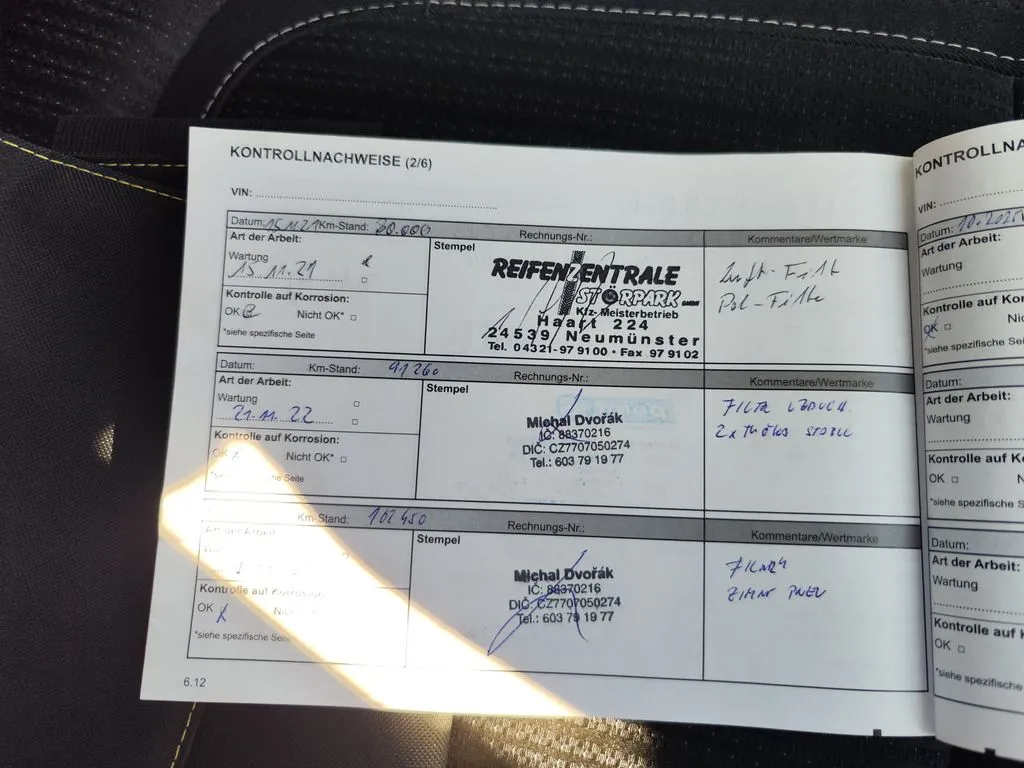 KONTROLLNACHWEISE (2/6)
VIN:
Datum: 15.11.21 Km-Stand: 80.000 Rechnungs-Nr.: Kommentare/Wertmarke
Art der Arbeit:
Wartung
15.11.21
Kontrolle auf Korrosion:
OK Nicht OK*
*siehe spezifische Seite
Stempel
REIFENZENTRALE
STÖRPARK GMBH
Kfz-Meisterbetrieb
Haart 224
24539 Neumünster
Tel. 04321-979100 · Fax 979102
Luft-Filt
Pol-Filte
Datum: Km-Stand: 91260 Rechnungs-Nr.: Kommentare/Wertmarke
Art der Arbeit:
Wartung
21.11.22
Kontrolle auf Korrosion:
OK Nicht OK*
he Seite
Stempel
Michal Dvořák
IČ: 88370216
DIČ: CZ7707050274
Tel.: 603 79 19 77
FILTR
2x
Km-Stand: 102450 Rechnungs-Nr.: Kommentare/Wertmarke
Art der Arbeit
Kontrolle auf Korrosion:
OK
*siehe spezifische Seite
Stempel
Michal Dvořák
IČ: 88370216
DIČ: CZ7707050274
Tel.: 603 79 19 77
ZIMNI PNEU
6.12
KONTROLLNA
VIN:
Datum:
Art der Arbeit:
Wartung
Kontrolle auf Ko
OK
*siehe spezifische Sei
Datum:
Art der Arbeit:
Wartung
Kontrolle auf K
OK N
*siehe spezifische S
Datum:
Art der Arbeit:
Wartung
Kontrolle auf K
OK
*siehe spezifische